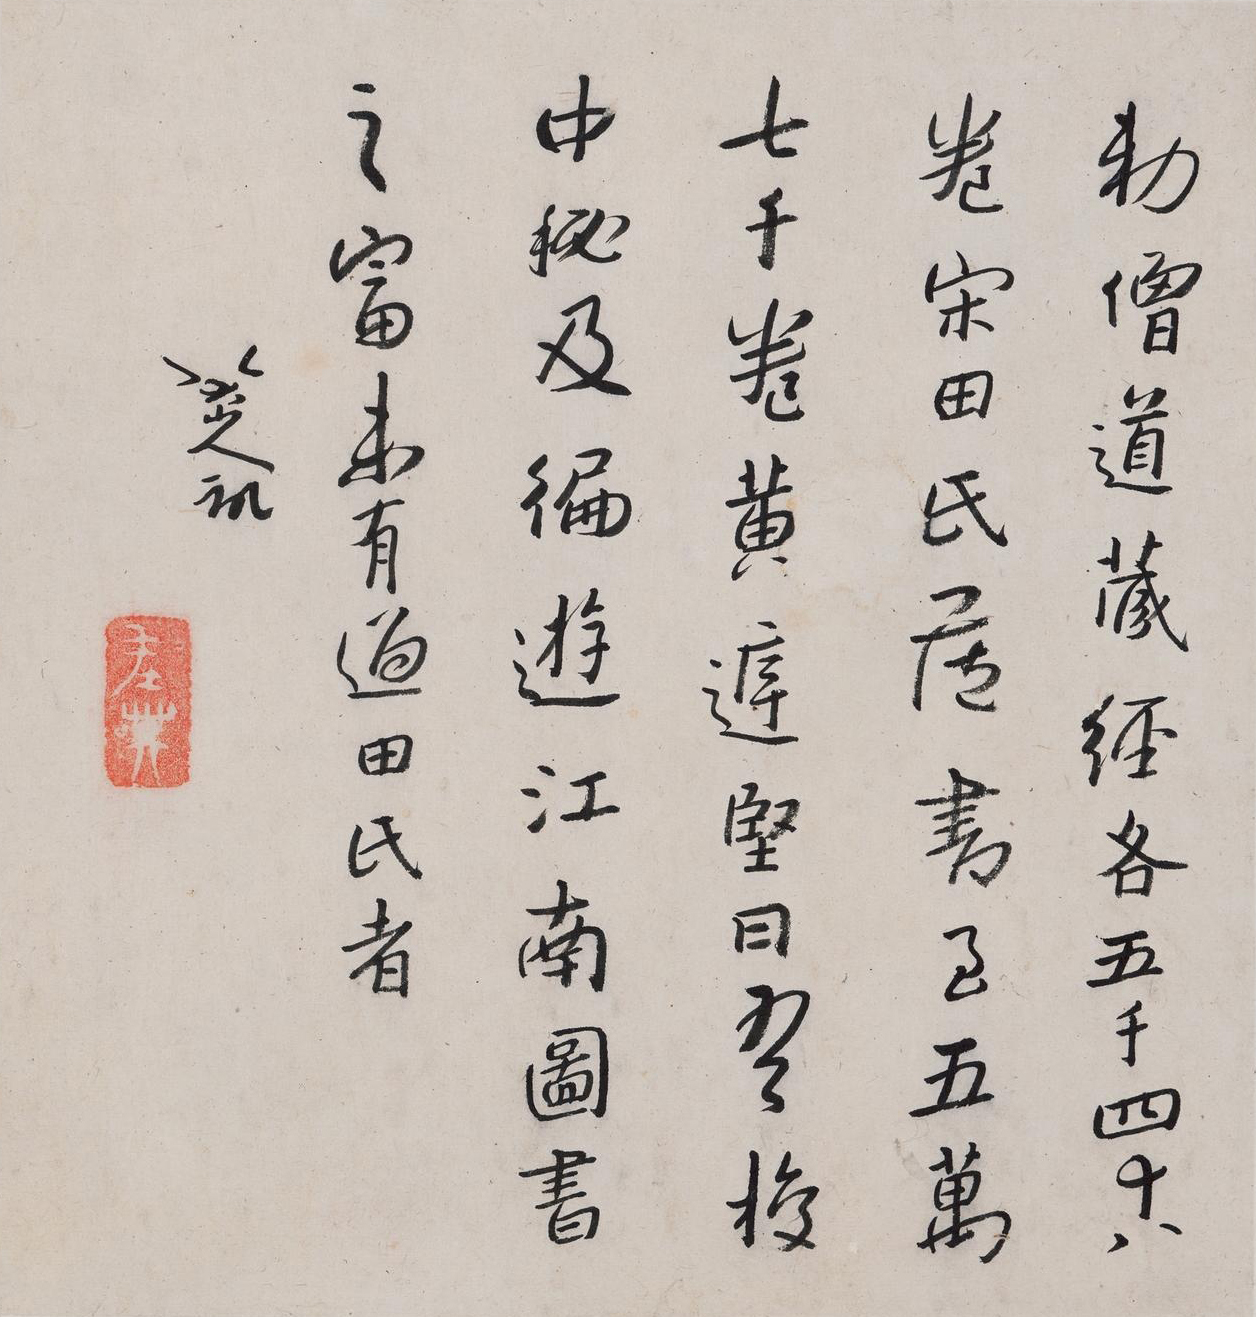 勅僧道藏經各五千四十八
卷宋田氏居書至五萬
七千卷黃遲堅曰吾校
中秘及徧遊江南圖書
之富未有過田氏者
八大山人記